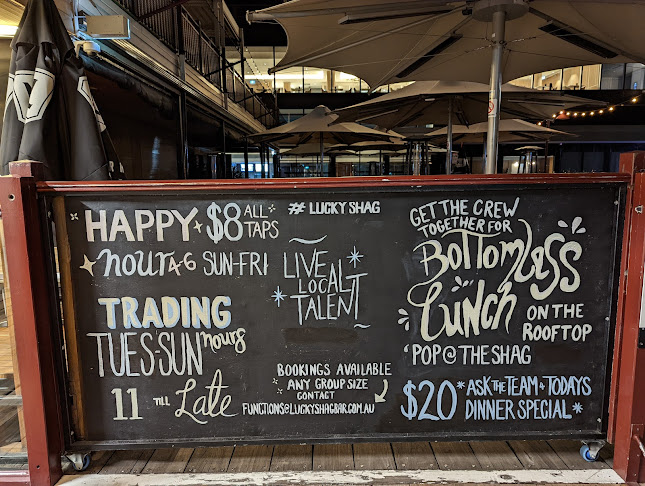 HAPPY $8 ALL TAPS
hour 4-6 SUN-FRI
TRADING
TUES-SUN hours
11 TILL Late
# LUCKY SHAG
LIVE
LOCAL
TALENT
BOOKINGS AVAILABLE
ANY GROUP SIZE
CONTACT
FUNCTIONS@LUCKYSHAGBAR.COM.AU
GET THE CREW
TOGETHER FOR
BOTTOMLESS
LUNCH ON THE
ROOFTOP
'POP @ THE SHAG
$20 *ASK THE TEAM 4 TODAYS
DINNER SPECIAL*